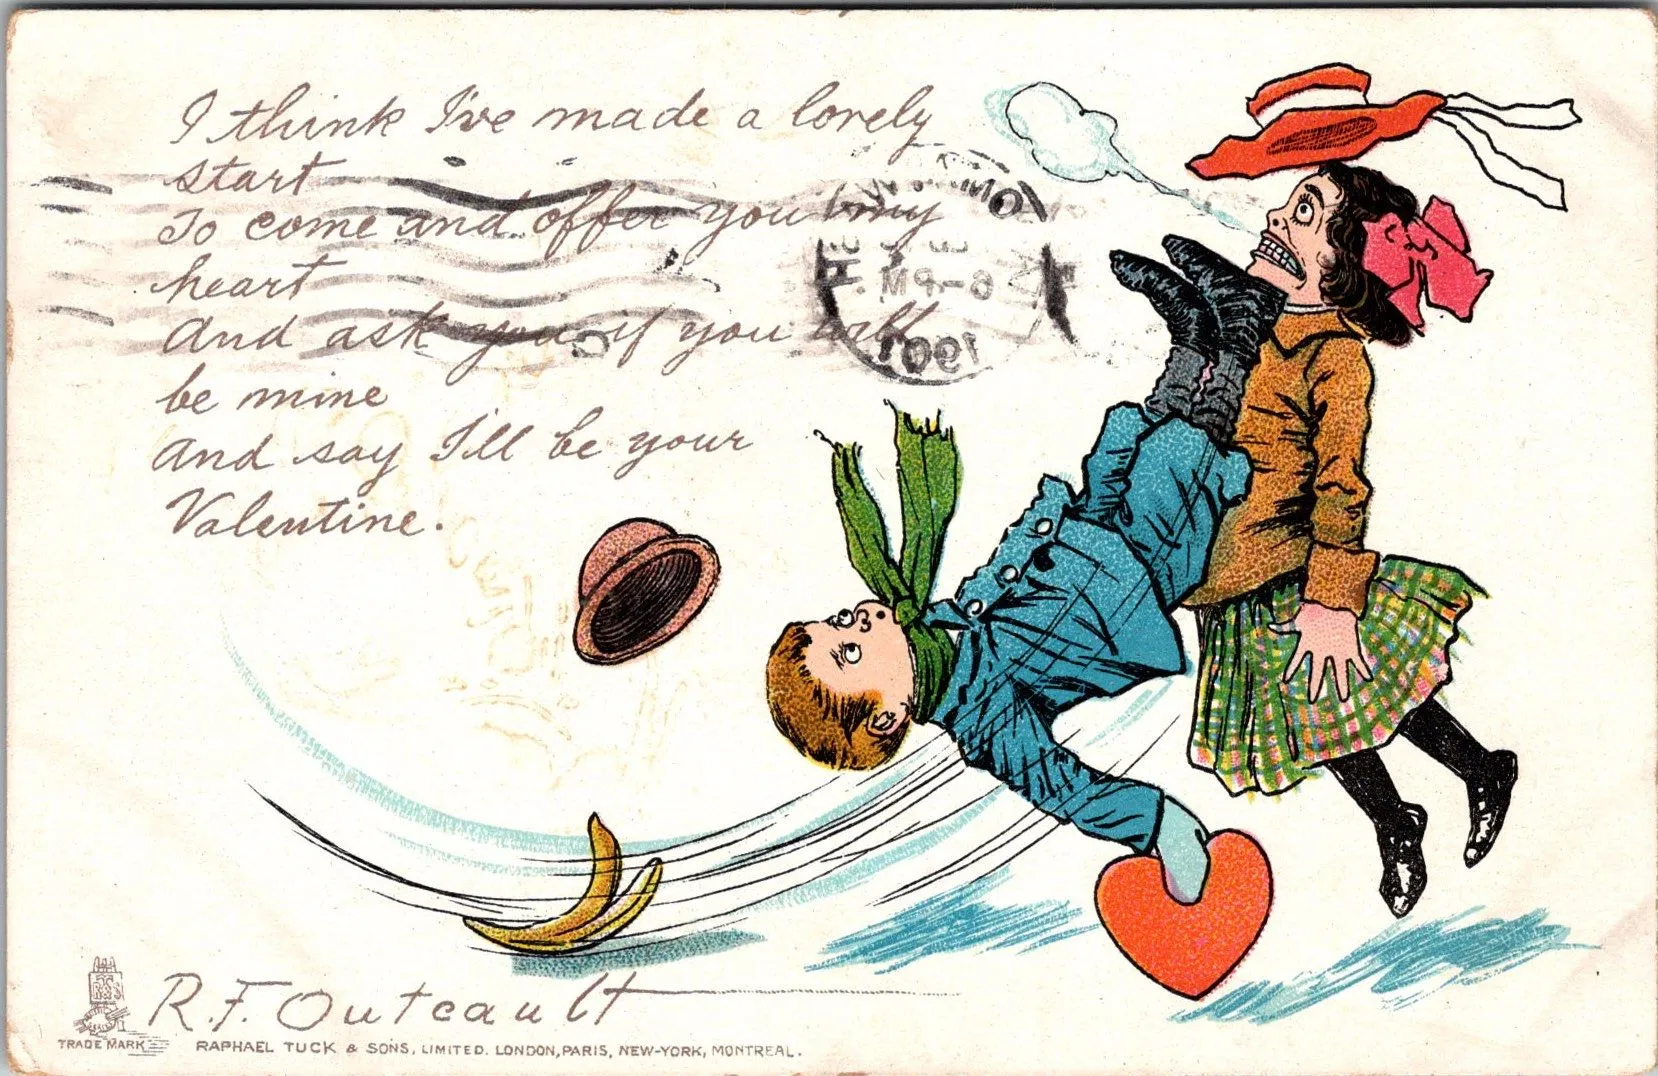 I think I've made a lovely
start
To come and offer you my
heart
And ask you if you will
be mine
And say I'll be your
Valentine.
R.F. Outcault
TRADE MARK
RAPHAEL TUCK & SONS, LIMITED. LONDON, PARIS, NEW-YORK, MONTREAL.